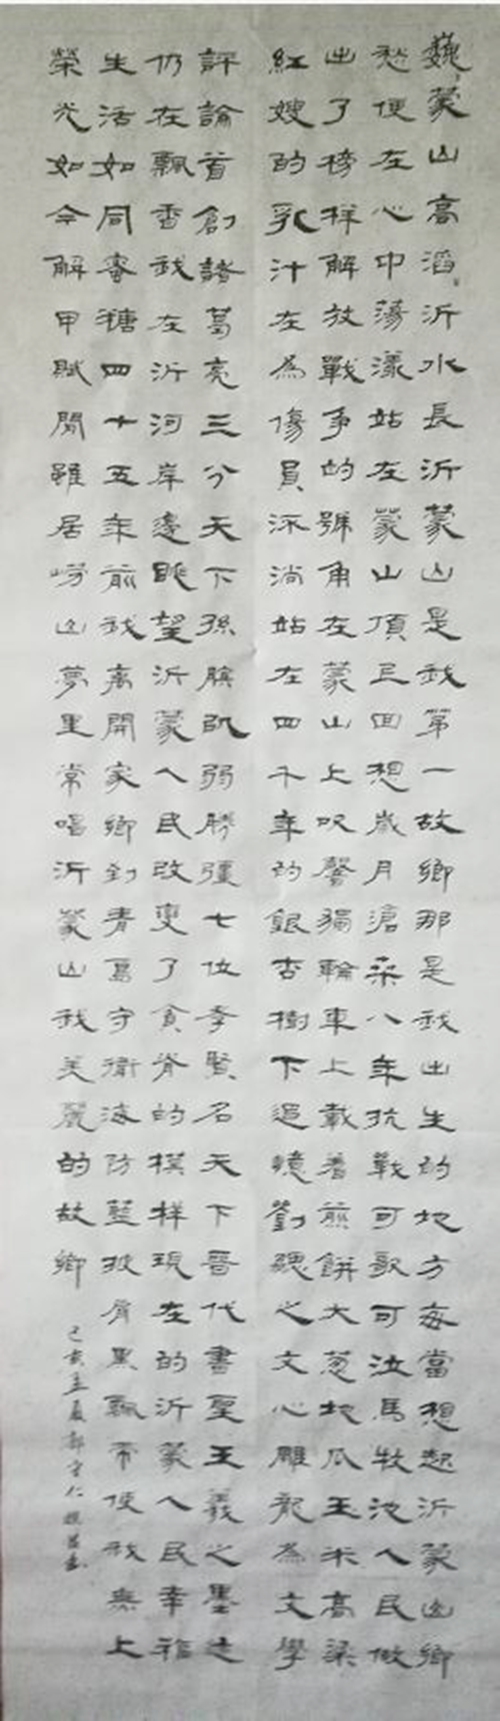 巍〻蒙山高滔〻沂水長沂蒙山是我第一故鄉那是我出生的地方每當想起沂蒙山鄉
愁便在心中蕩漾站在蒙山頂上回想歲月滄桑八年抗戰可歌可泣馬牧池人民做
出了榜样解放戰争的號角在蒙山上吹響獨輪車上載着煎餅大葱地瓜玉米高梁
紅嫂的乳汁在為傷員流淌站在四千年的銀杏樹下追憶劉勰之文心雕龍為文學
評論首創諸葛亮三分天下孫臏弱勝彊七位孝賢名天下晉代書聖王羲之墨迹
仍在飄香我在沂河岸邊眺望沂蒙人民改變了貧脊的模样現在的沂蒙人民幸福
生活如同蜜糖四十五年前我离開家鄉到青島守衛海防藍披肩黑飄帶使我無上
榮光如今解甲賦閒雖居嶗山夢里常唱沂蒙山我美麗的故鄉
己亥孟夏郭守仁撰並書